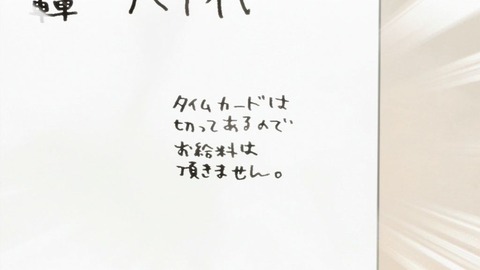 轟 八千代
タイムカードは
切ってあるので
お給料は
頂きません。